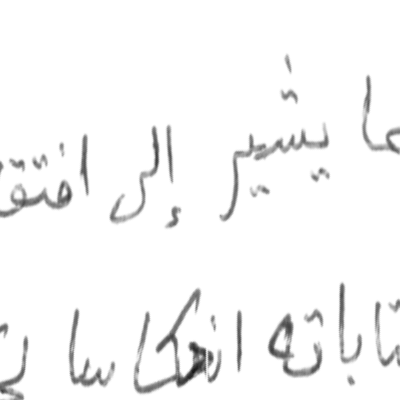 ما يشير إلى افتق
تاباته انعكاسا